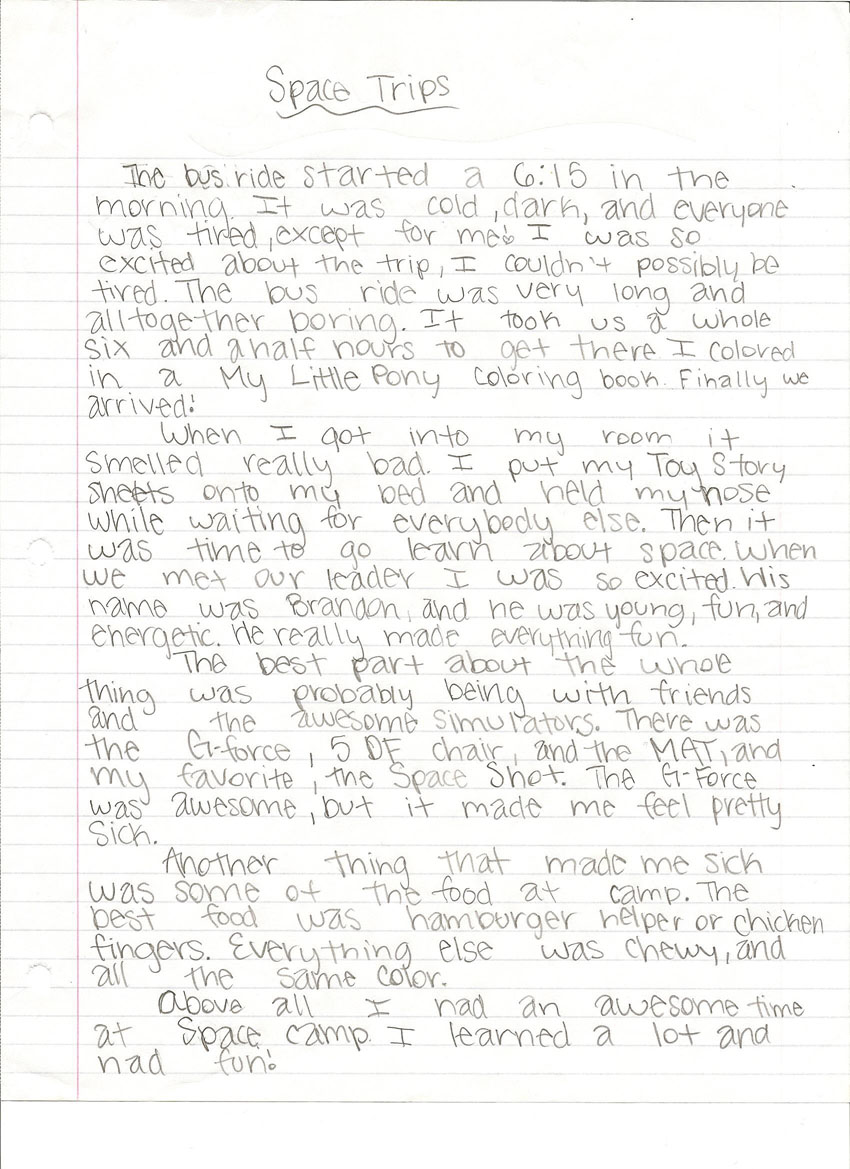 Space Trips
The bus ride started a 6:15 in the
morning. It was cold, dark, and everyone
was tired, except for me! I was so
excited about the trip, I couldn't possibly be
tired. The bus ride was very long and
alltogether boring. It took us a whole
six and a half hours to get there I colored
in a My Little Pony coloring book. Finally we
arrived!
When I got into my room it
smelled really bad. I put my Toy Story
sheets onto my bed and held my nose
while waiting for everybody else. Then it
was time to go learn about space. When
we met our leader I was so excited. His
name was Brandon, and he was young, fun, and
energetic. He really made everything fun.
The best part about the whole
thing was probably being with friends
and the awesome simulators. There was
the G-force, 5 DF chair, and the MAT, and
my favorite, the Space Shot. The G-Force
was awesome, but it made me feel pretty
sick.
Another thing that made me sick
was some of the food at camp. The
best food was hamburger helper or chicken
fingers. Everything else was chewy, and
all the same color.
Above all I had an awesome time
at Space camp. I learned a lot and
had fun!